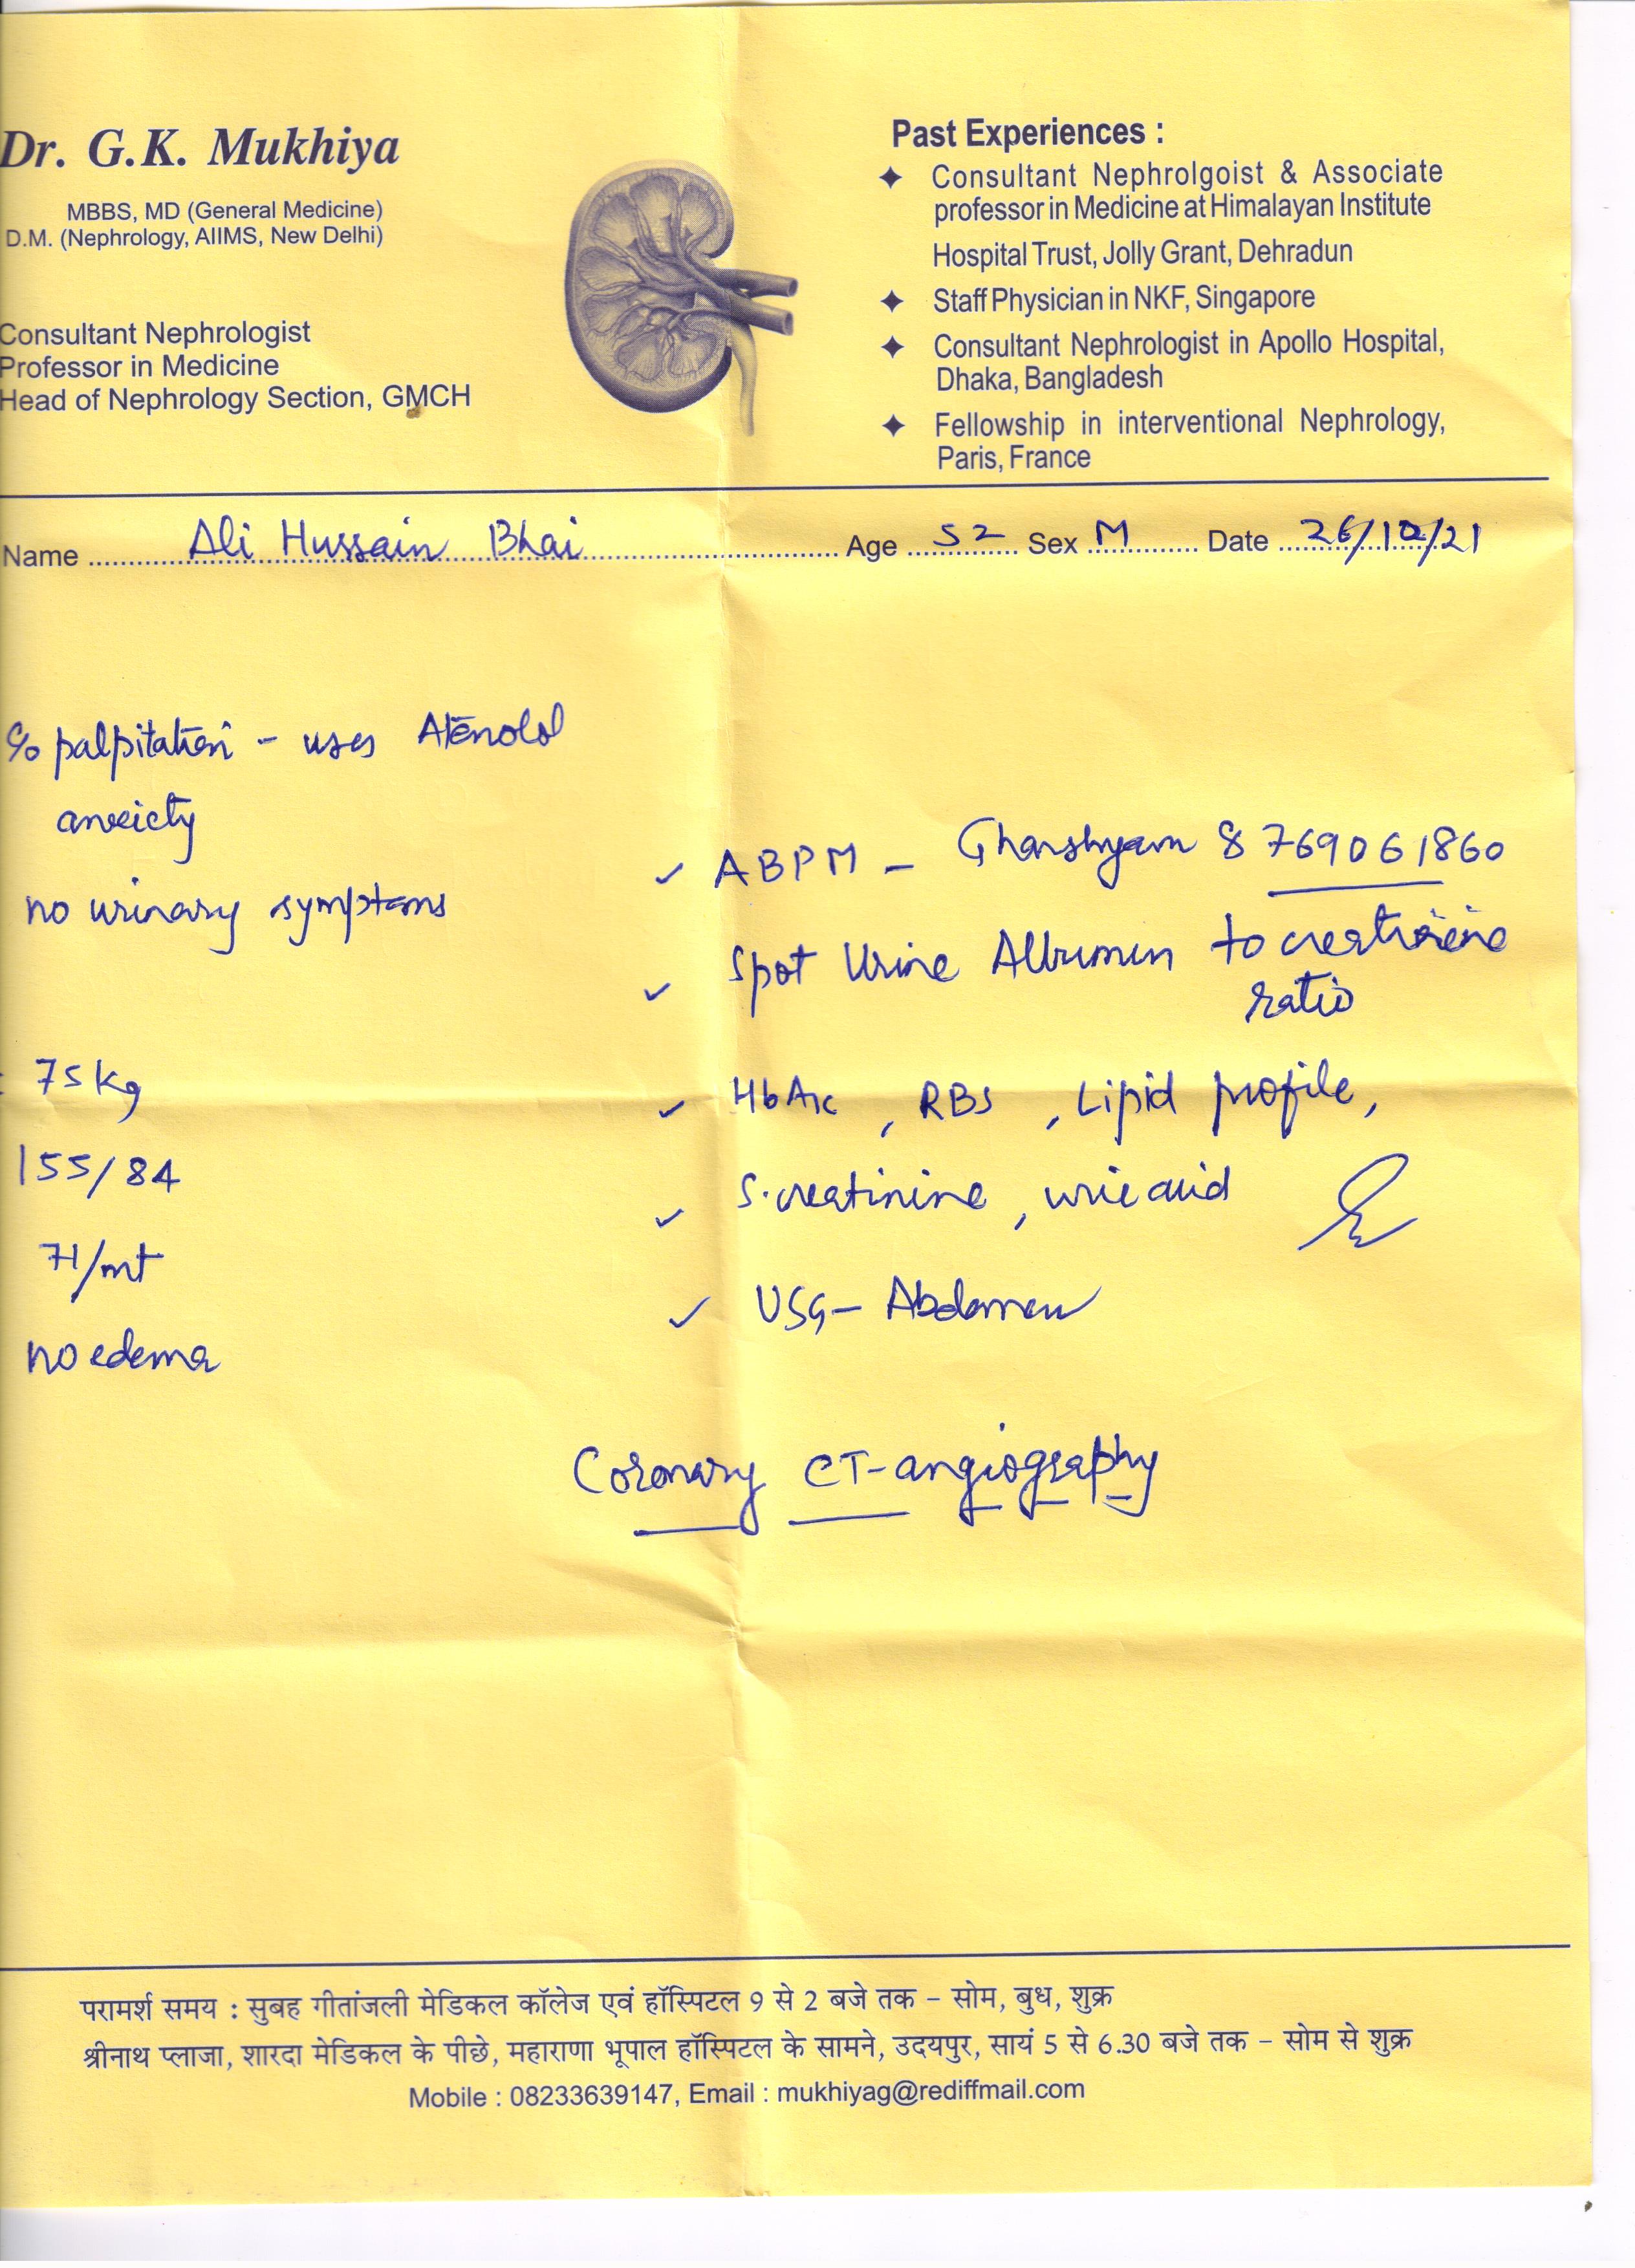 Dr. G.K. Mukhiya
MBBS, MD (General Medicine)
D.M. (Nephrology, AIIMS, New Delhi)
Consultant Nephrologist
Professor in Medicine
Head of Nephrology Section, GMCH
Past Experiences :
✦ Consultant Nephrolgoist & Associate
professor in Medicine at Himalayan Institute
Hospital Trust, Jolly Grant, Dehradun
✦ Staff Physician in NKF, Singapore
✦ Consultant Nephrologist in Apollo Hospital,
Dhaka, Bangladesh
✦ Fellowship in interventional Nephrology,
Paris, France
Name Ali Hussain Bhai Age 52 Sex M Date 26/10/21
c/o palpitation - uses Atenolol
anxiety
no urinary symptoms
: 75 kg
155/84
71/mt
no edema
✓ ABPM - Ghanshyam 8769061860
✓ Spot Urine Albumin to creatinine
ratio
✓ HbA1c, RBS, Lipid profile,
✓ S. creatinine, uric acid
✓ USG - Abdomen
Coronary CT-angiography
परामर्श समय : सुबह गीतांजली मेडिकल कॉलेज एवं हॉस्पिटल 9 से 2 बजे तक – सोम, बुध, शुक्र
श्रीनाथ प्लाजा, शारदा मेडिकल के पीछे, महाराणा भूपाल हॉस्पिटल के सामने, उदयपुर, सायं 5 से 6.30 बजे तक – सोम से शुक्र
Mobile : 08233639147, Email : mukhiyag@rediffmail.com